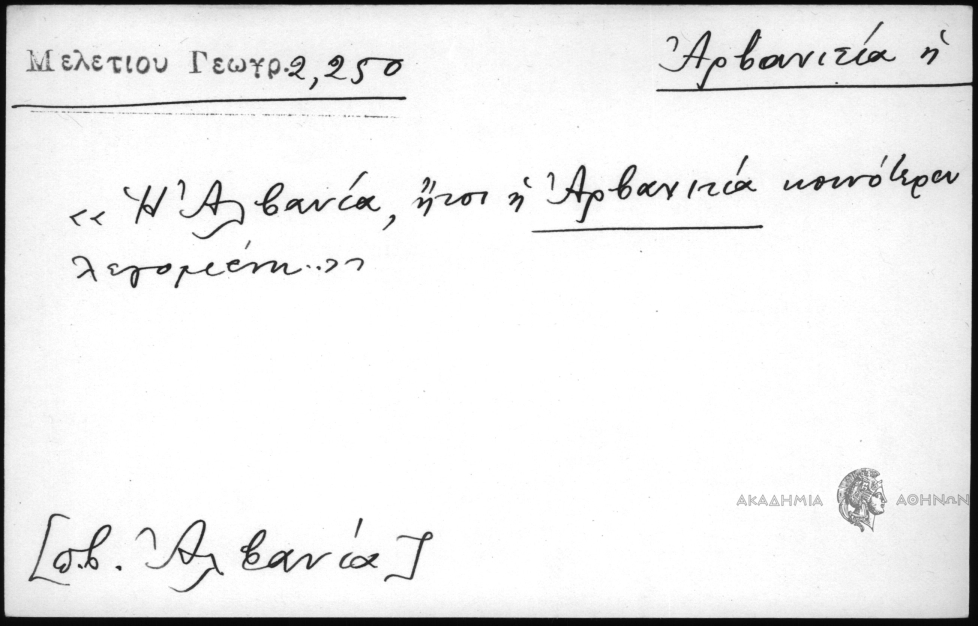 Μελετίου Γεωγρ. 2,250
Ἀρβανιτία ἡ
«Ἡ Ἀλβανία, ἤτοι ἡ Ἀρβανιτία κοινότερον
λεγομένη..»
ΑΚΑΔΗΜΙΑ ΑΘΗΝΩΝ
[πβ. Ἀλβανία]